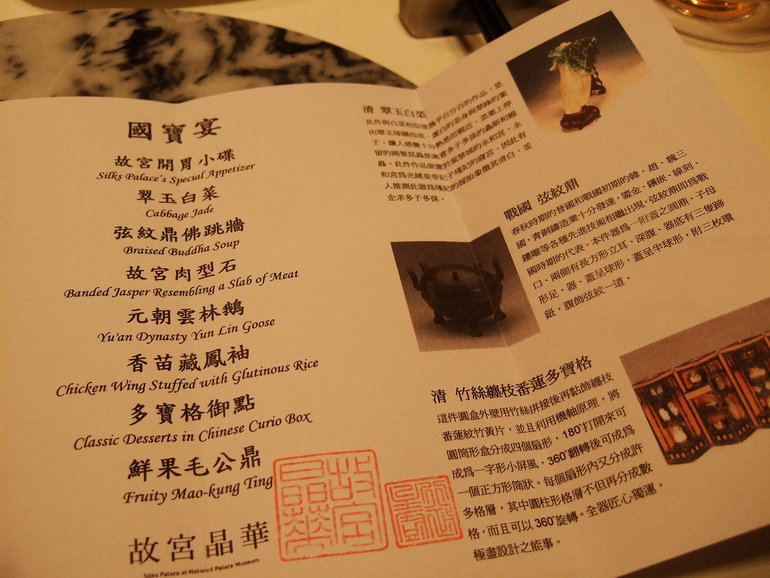 國寶宴
故宮開胃小碟
Silks Palace's Special Appetizer
翠玉白菜
Cabbage Jade
弦紋鼎佛跳牆
Braised Buddha Soup
故宮肉型石
Banded Jasper Resembling a Slab of Meat
元朝雲林鵝
Yu'an Dynasty Yun Lin Goose
香苗藏鳳袖
Chicken Wing Stuffed with Glutinous Rice
多寶格御點
Classic Desserts in Chinese Curio Box
鮮果毛公鼎
Fruity Mao-kung Ting
故宮晶華
Silks Palace at National Palace Museum
故宮晶華
清 翠玉白菜
企求多子多孫。
戰國 弦紋鼎
春秋時期的晉國和戰國初期的韓、趙、魏三
國，青銅鑄造業十分發達，鎏金、鑲嵌、線刻、
鏤雕等各種先進技術相繼出現，弦紋鼎即為戰
國時期的代表。本件器為一附蓋之圓鼎，子母
口、兩側有長方形立耳，深腹，器底有三隻蹄
形足，器、蓋呈球形，蓋呈半球形，附三枚環
鈕，腹飾弦紋一道。
清 竹絲纏枝番蓮多寶格
這件圓盒外壁用竹絲拼接後再黏飾纏枝
番蓮紋竹黃片，並且利用機軸原理，將
圓筒形盒分成四個扇形，180°打開來可
成為一字形小屏風，360°翻轉後可成為
一個正方形筒狀。每個扇形內又分成許
多格層，其中圓柱形格層不但再分成數
格，而且可以360°旋轉。全器匠心獨運，
極盡設計之能事。